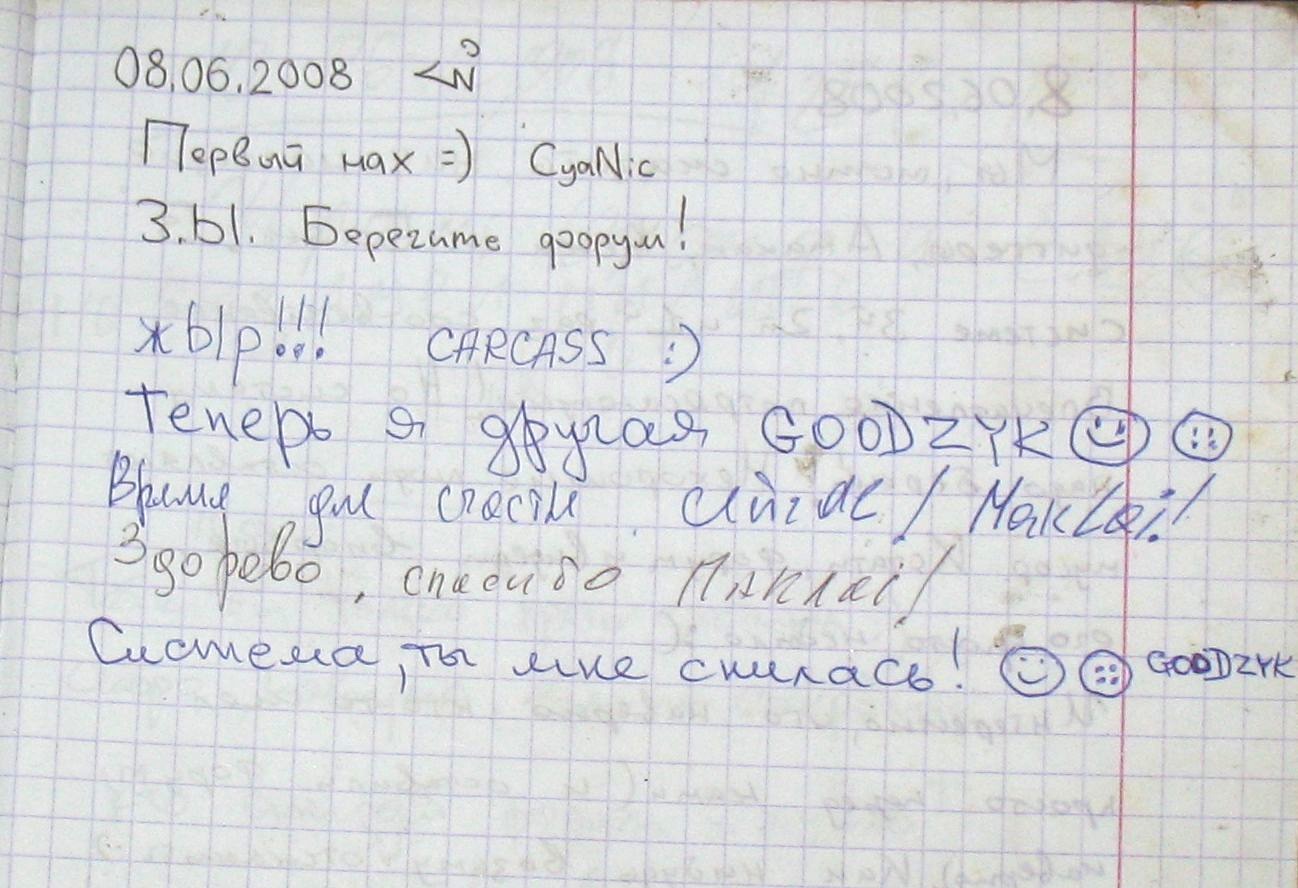 08.06.2008
Первый нах =) CyaNic
З.Ы. Берегите форум!
жЫр!!! CARCASS :)
Теперь я другая GOODZYK
Время для счастья. MakLai!
Здорово, спасибо Маклаi!
Система, ты мне снилась! GOODZYK